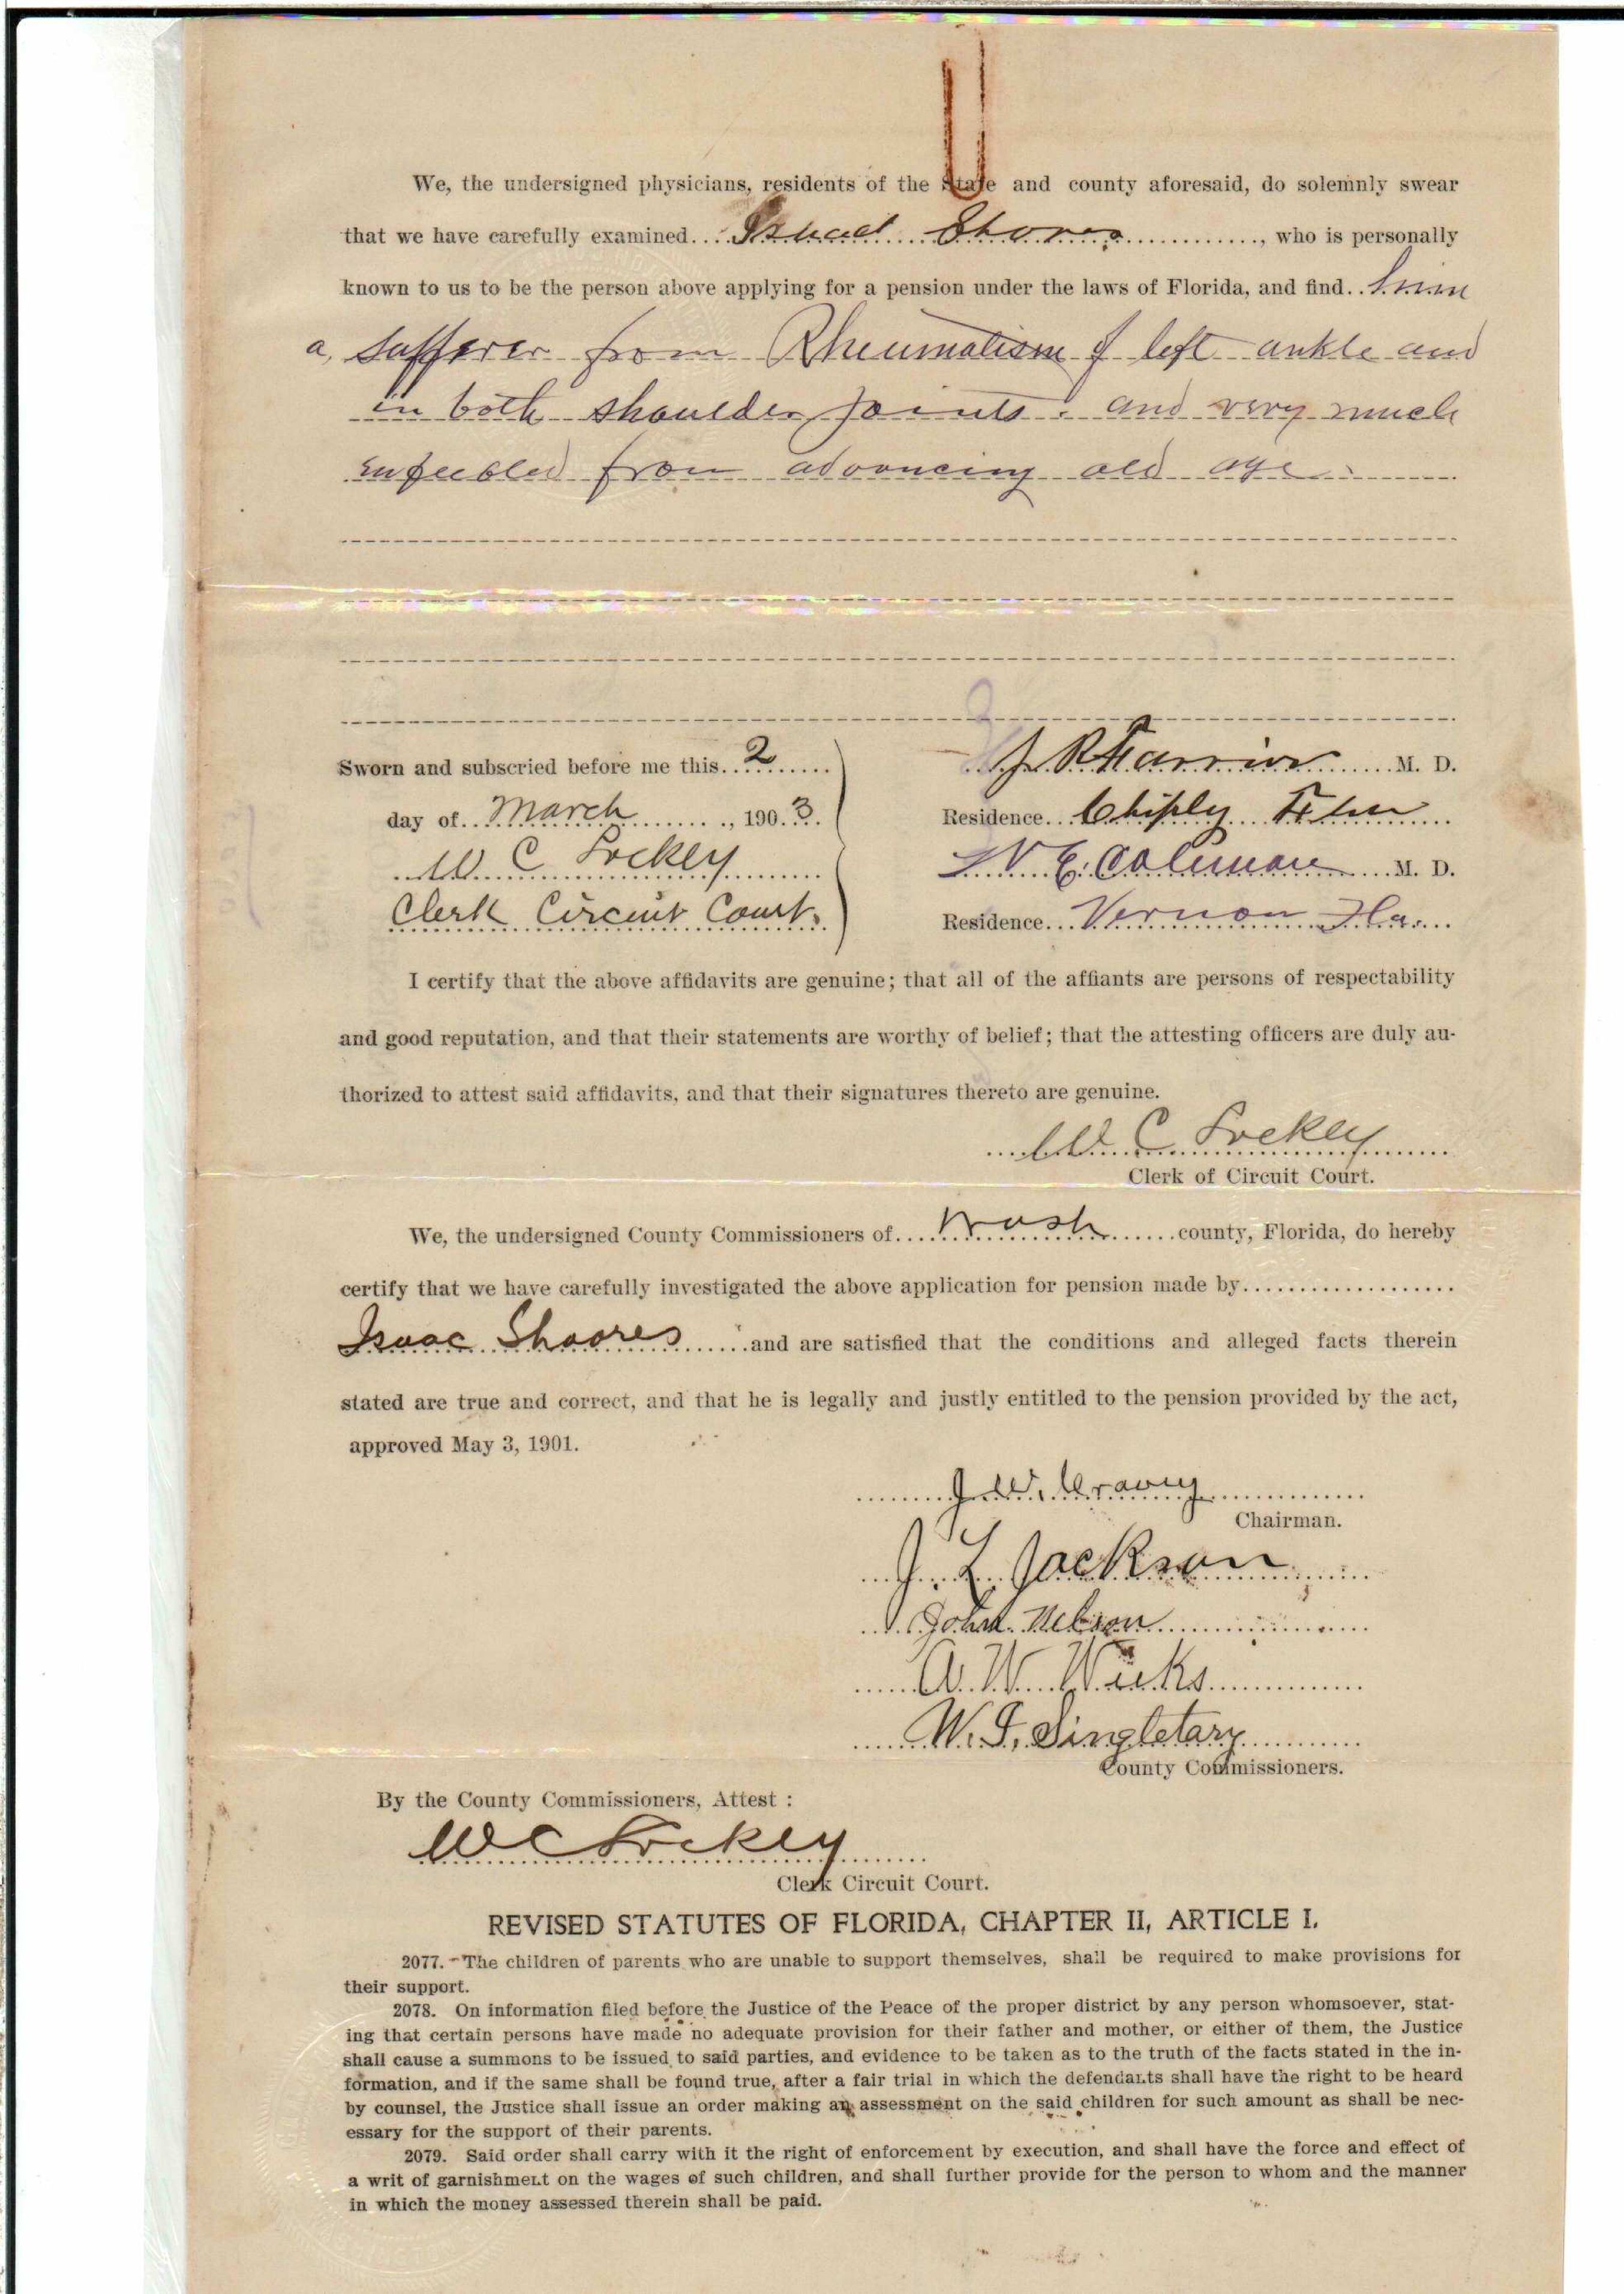 We, the undersigned physicians, residents of the State and county aforesaid, do solemnly swear
that we have carefully examined.... Shores ............, who is personally
known to us to be the person above applying for a pension under the laws of Florida, and find.. him
a sufferer from Rheumatism of left ankle and
in both shoulder joints. and very much
enfeebled from advancing old age.
Sworn and subscried before me this.. 2 ......
day of.. March ........, 190. 3.
W C Lockey
Clerk Circuit Court.
J R Farrior ..... M. D.
Residence... Chipley Fla
E. Coleman ..... M. D.
Residence... Vernon Fla....
I certify that the above affidavits are genuine; that all of the affiants are persons of respectability
and good reputation, and that their statements are worthy of belief; that the attesting officers are duly au-
thorized to attest said affidavits, and that their signatures thereto are genuine.
W C Lockey
Clerk of Circuit Court.
We, the undersigned County Commissioners of.... Wash ......county, Florida, do hereby
certify that we have carefully investigated the above application for pension made by...................
Isaac Shoores ......and are satisfied that the conditions and alleged facts therein
stated are true and correct, and that he is legally and justly entitled to the pension provided by the act,
approved May 3, 1901.
J. W.
Chairman.
J. L. Jackson
John Nelson
A. W. Weeks
W. F. Singletary
County Commissioners.
By the County Commissioners, Attest :
W C Lockey
Clerk Circuit Court.
REVISED STATUTES OF FLORIDA, CHAPTER II, ARTICLE I.
2077. - The children of parents who are unable to support themselves, shall be required to make provisions for
their support.
2078. On information filed before the Justice of the Peace of the proper district by any person whomsoever, stat-
ing that certain persons have made no adequate provision for their father and mother, or either of them, the Justice
shall cause a summons to be issued to said parties, and evidence to be taken as to the truth of the facts stated in the in-
formation, and if the same shall be found true, after a fair trial in which the defendants shall have the right to be heard
by counsel, the Justice shall issue an order making an assessment on the said children for such amount as shall be nec-
essary for the support of their parents.
2079. Said order shall carry with it the right of enforcement by execution, and shall have the force and effect of
a writ of garnishment on the wages of such children, and shall further provide for the person to whom and the manner
in which the money assessed therein shall be paid.